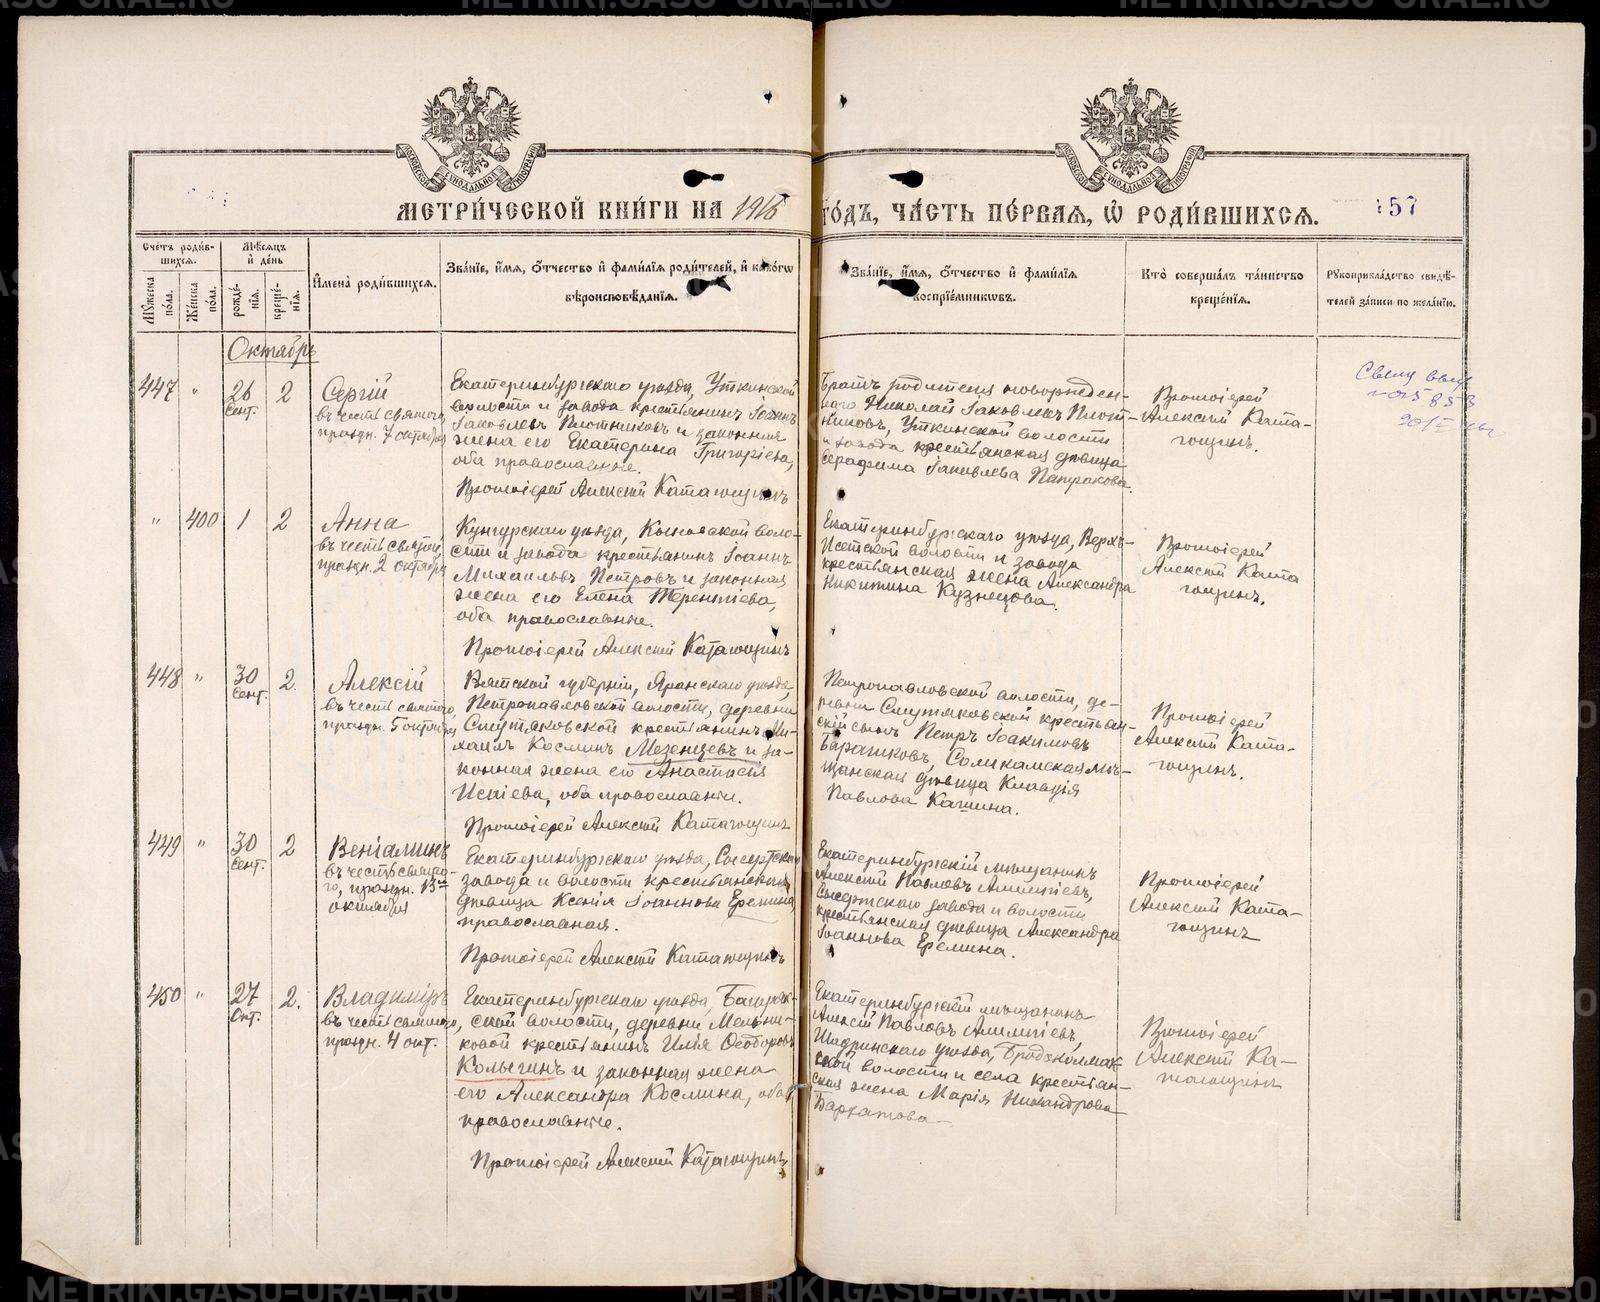 МЕТРИЧЕСКОЙ КНИГИ НА 1916 ГОДЪ, ЧАСТЬ ПЕРВАЯ, Ѿ РОДИВШИХСЯ.
57
Счетъ родив-
шихся.
Мѣсяцъ
и день
Мужеска
пола.
Женска
пола.
рожде-
нія.
креще-
нія.
Имена родившихся.
Званіе, имя, отчество и фамилія родителей, и какогѡ
вѣроисповѣданія.
Званіе, имя, отчество и фамилія
воспріемниковъ.
Кто совершалъ таинство
крещенія.
Рукоприкладство свидѣ-
телей записи по желанію.
Октябрь
447 " 26 2
Сент.
Сергій
въ честь святого,
праздн. 7 октября
Екатеринбургскаго уѣзда, Уткинской
волости и завода крестьянинъ Іоаннъ
Іаковлевъ Плотниковъ и законная
жена его Екатерина Григоріева,
оба православные.
Протоіерей Алексій Катагощинъ
Братъ родителя новорожден-
наго Николай Іаковлевъ Плот-
никовъ, Уткинской волости
и завода крестьянская дѣвица
Серафима Іаковлева Патракова.
Протоіерей
Алексій Ката-
гощинъ.
" 400 1 2
Анна
въ честь святой,
праздн. 2 октября
Кунгурскаго уѣзда, воло-
сти и завода крестьянинъ Іоаннъ
Михаиловъ Петровъ и законная
жена его Елена Терентіева,
оба православные.
Протоіерей Алексій Катагощинъ
Екатеринбургскаго уѣзда, Верхъ-
Исетской волости и завода
крестьянская жена Александра
Никитина Кузнецова.
Протоіерей
Алексій Ката
гощинъ.
448 " 30 2.
Сент.
Алексій
въ честь святого,
праздн. 5 октября
Вятской губерніи, Яранскаго уѣзда,
Петропавловской волости, деревни
крестьянинъ Ми-
хаилъ Косминъ Мезенцевъ и за-
конная жена его Анастасія
оба православные.
Протоіерей Алексій Катагощинъ
Петропавловской волости, де-
ревни крестьян-
скій сынъ Петръ Іоакимовъ
Соликамская мѣ-
щанская дѣвица Клавдія
Павлова Кашина.
Протоіерей
Алексій Ката-
гощинъ.
449 " 30 2
Сент.
Веніаминъ
въ честь свято-
го, праздн. 13го
октября
Екатеринбургскаго уѣзда, Сысертскаго
завода и волости крестьянская
дѣвица Ксенія Іоаннова Еремина,
православная.
Протоіерей Алексій Катагощинъ
Екатеринбургскій мѣщанинъ
Алексій Павловъ Алимпіевъ,
Сысертскаго завода и волости
крестьянская дѣвица Александра
Іоаннова Еремина.
Протоіерей
Алексій Ката-
гощинъ
450 " 27 2.
Окт.
Владиміръ
въ честь святого,
праздн. 4 окт.
Екатеринбургскаго уѣзда, Багаряк-
ской волости, деревни Мельни-
ковой крестьянинъ Илія Ѳеодоровъ
Колыгинъ и законная жена
его Александра Космина, оба
православные.
Протоіерей Алексій Катагощинъ
Екатеринбургскій мѣщанинъ
Алексій Павловъ Алимпіевъ,
Шадринскаго уѣзда, Бродокалмак-
ской волости и села крестьян-
ская жена Марія Никандрова
Бархатова
Протоіерей
Алексій Ка-
тагощинъ
METRIKI.GASO-URAL.RU